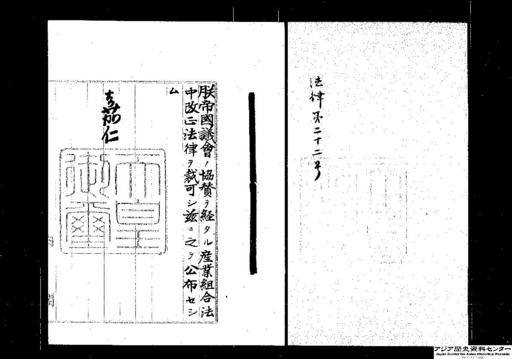 法律第二十二号
朕帝國議會ノ協賛ヲ経タル産業組合法
中改正法律ヲ裁可シ茲ニ之ヲ公布セシ
ム
嘉仁
天皇
御璽
アジア歴史資料センター
Japan Center for Asian Historical Records